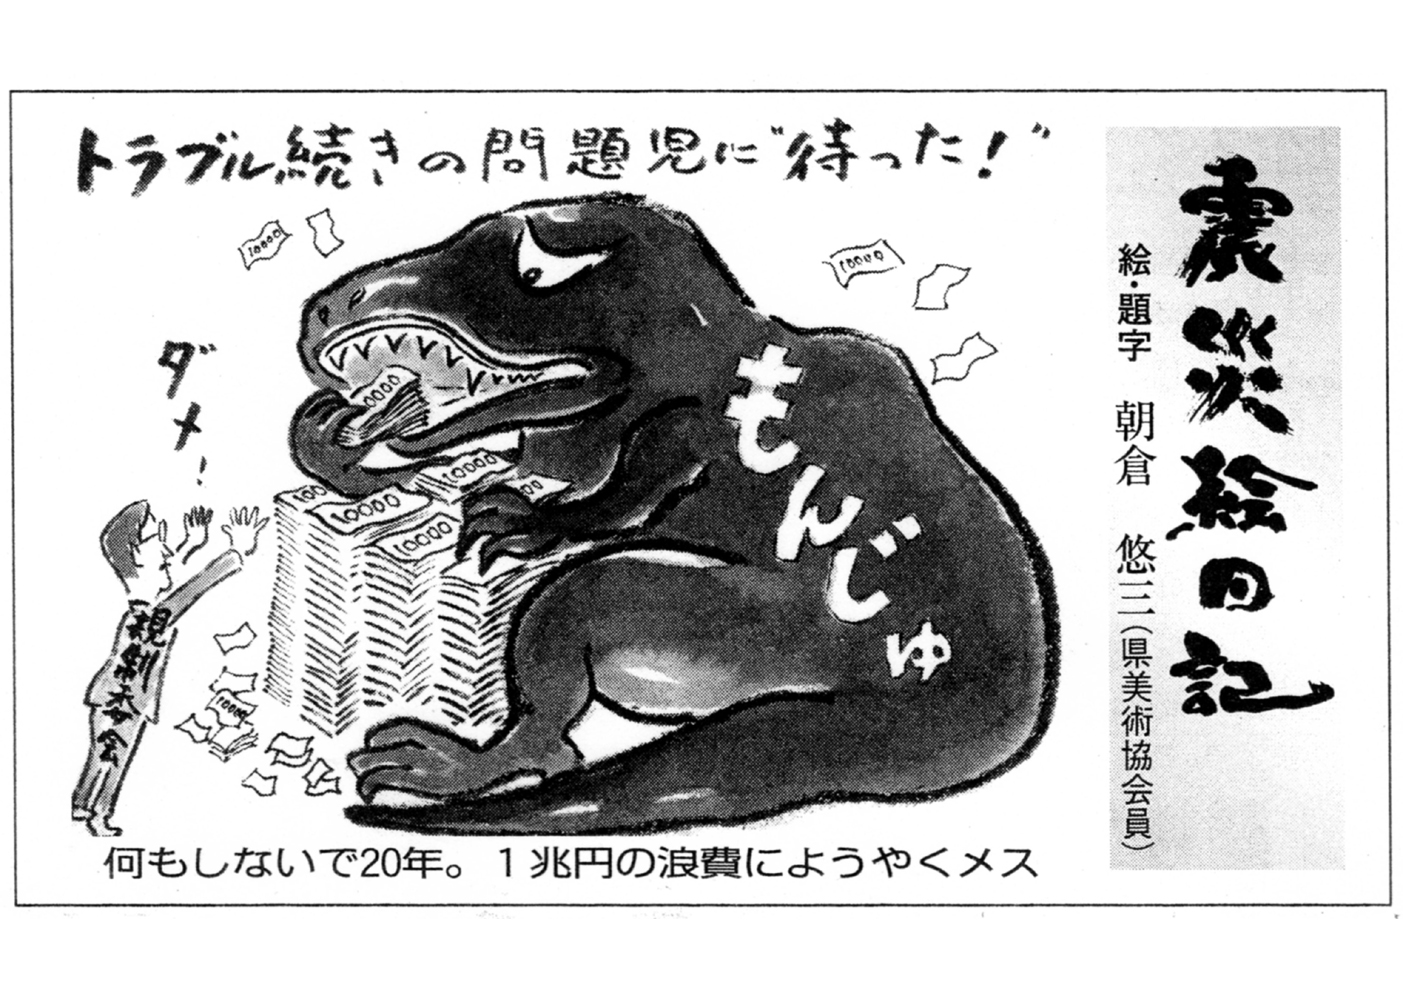 震災絵日記
絵・題字 朝倉 悠三(県美術協会会員)
トラブル続きの問題児に"待った!"
10000
10000
ダメ!
10000
10000
10000
10000
もんじゅ
規制委会
10000
何もしないで20年。1兆円の浪費にようやくメス